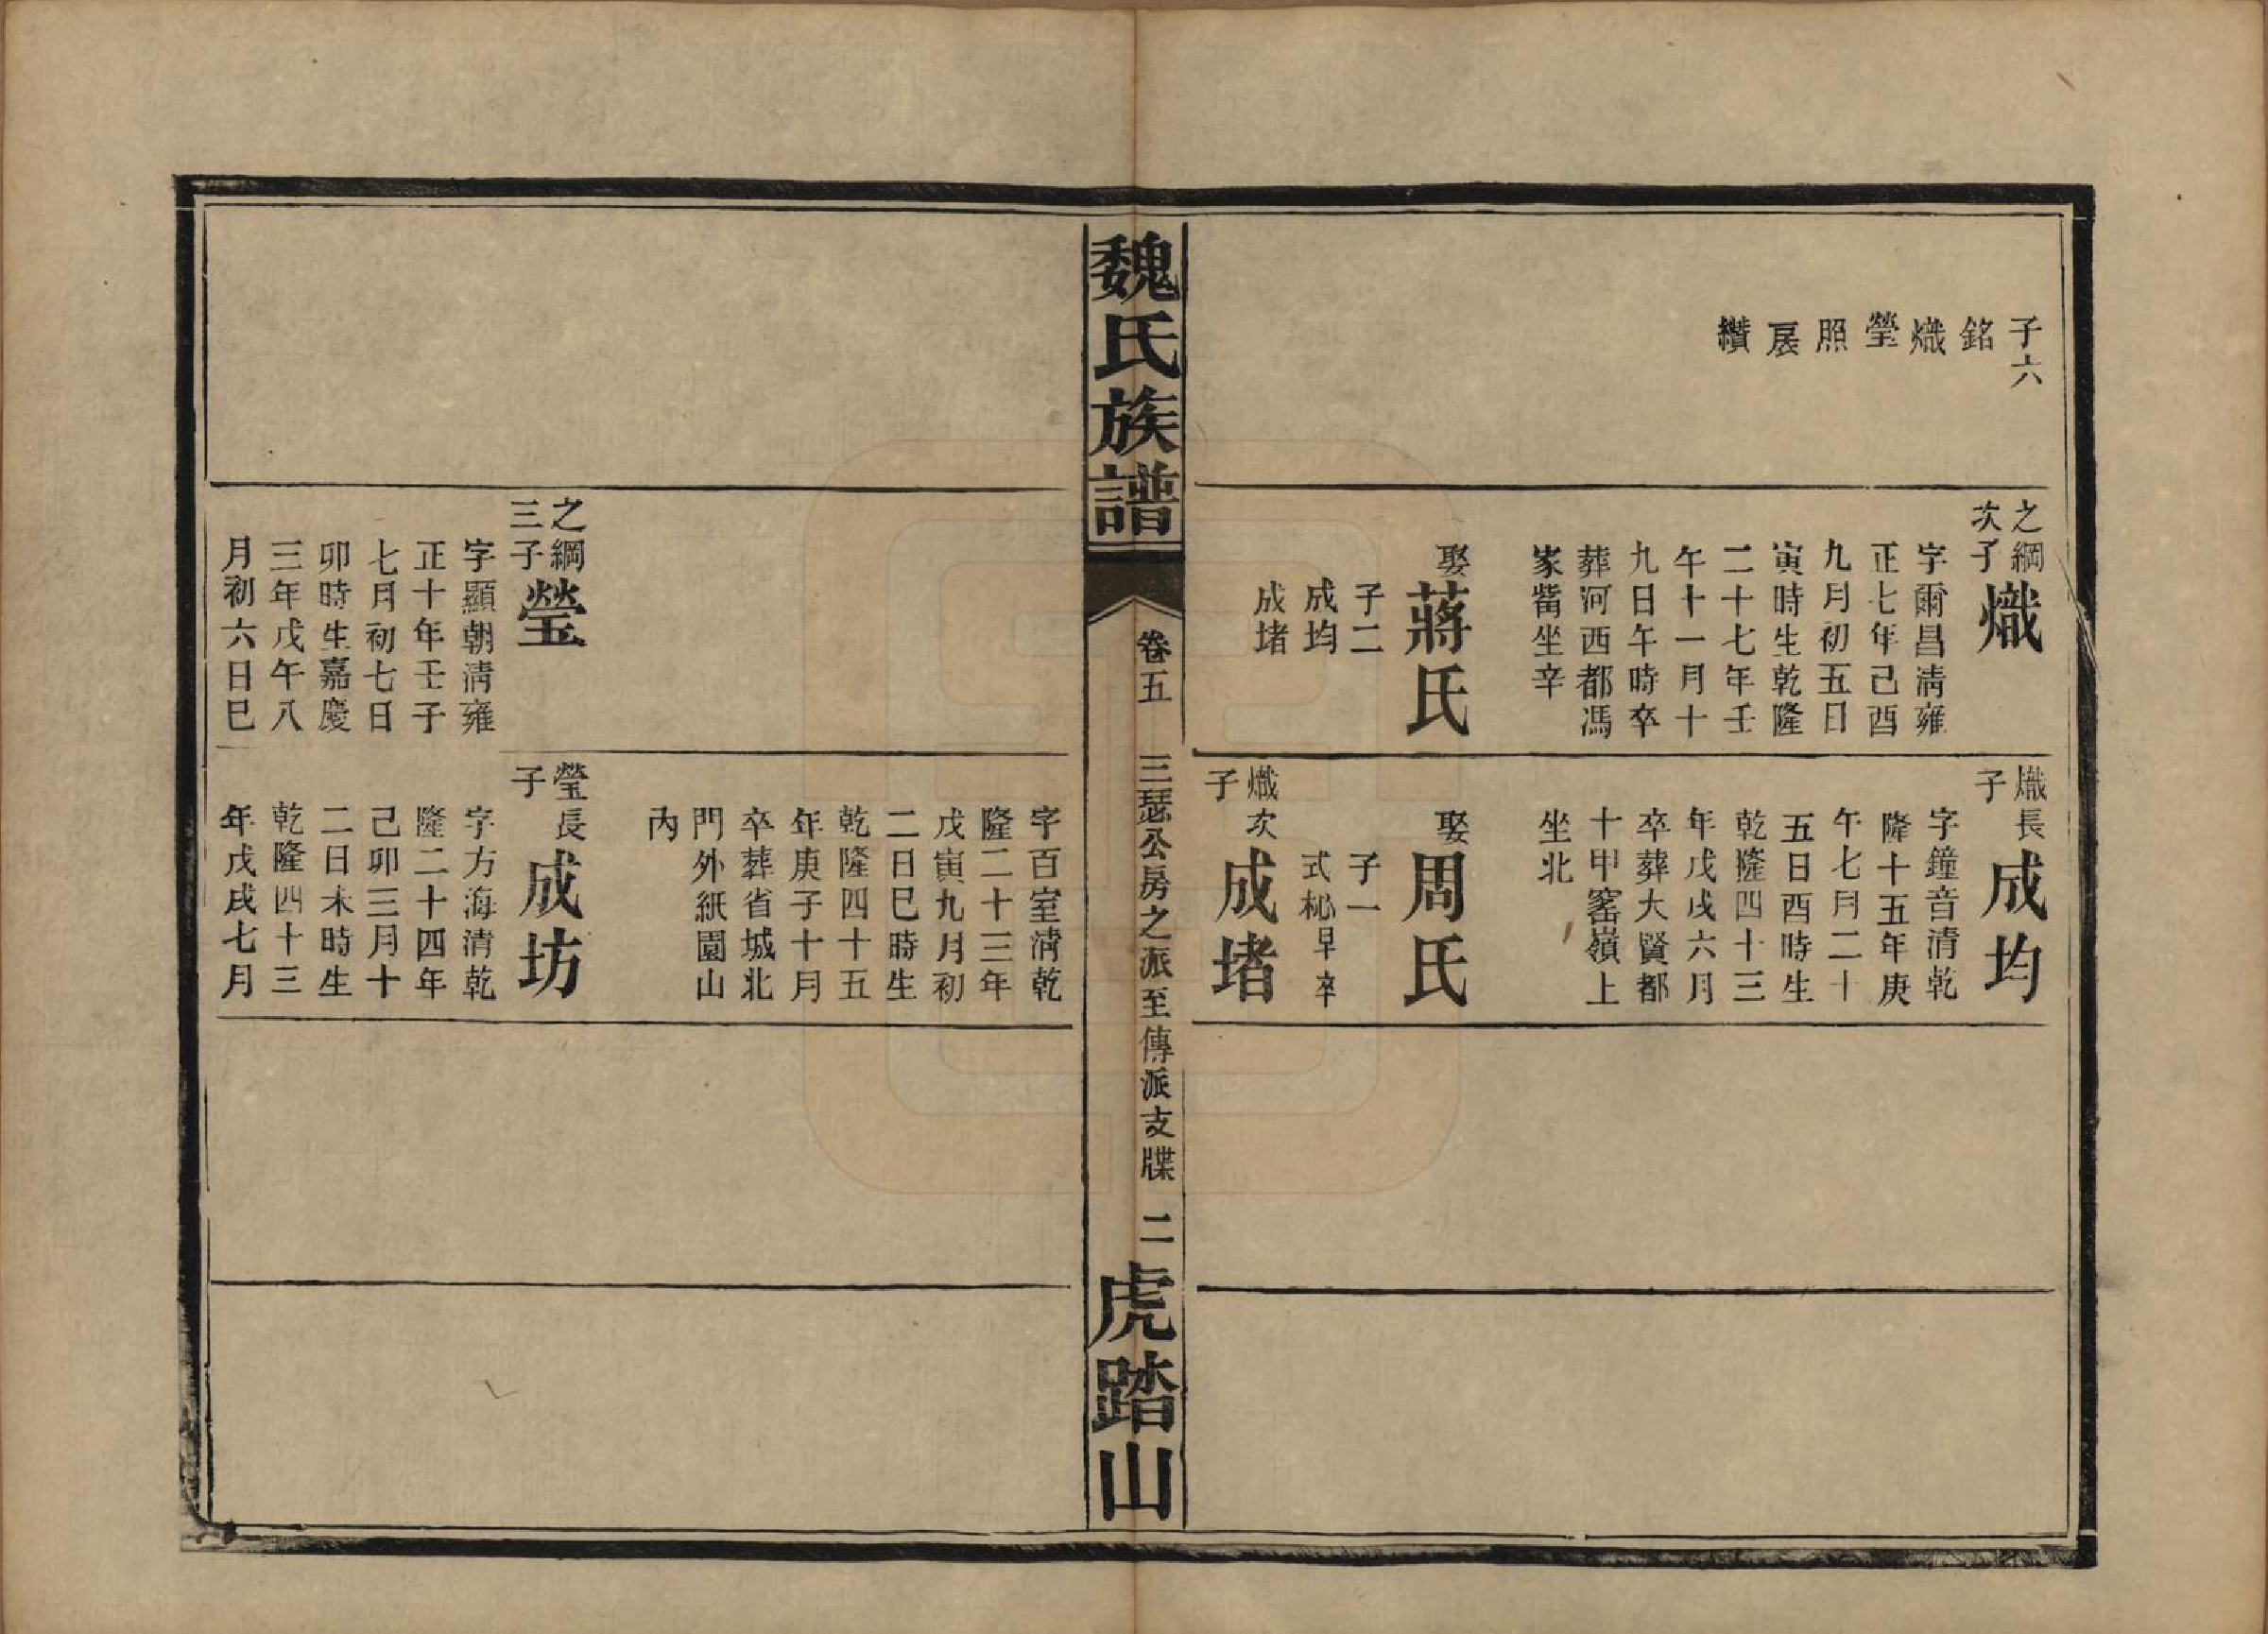 子六
銘
熾
瑩
照
扆
纘
之綱
次子
熾
字爾昌清雍
正七年己酉
九月初五日
寅時生乾隆
二十七年壬
午十一月十
九日午時卒
葬河西都馮
家甾坐辛
娶
蔣氏
子二
成均
成堵
熾長
子
成均
字鐘音清乾
隆十五年庚
午七月二十
五日酉時生
乾隆四十三
年戊戌六月
卒葬大賢都
十甲窰嶺上
坐北
娶
周氏
子一
式柲早卒
熾次
子
成堵
魏氏族譜
卷五
三瑟公房之派至傳派支牒
二
虎踏山
字百室清乾
隆二十三年
戊寅九月初
二日巳時生
乾隆四十五
年庚子十月
卒葬省城北
門外紙園山
內
之綱
三子
瑩
字顯朝清雍
正十年壬子
七月初七日
卯時生嘉慶
三年戊午八
月初六日巳
瑩長
子
成坊
字方海清乾
隆二十四年
己卯三月十
二日未時生
乾隆四十三
年戊戌七月